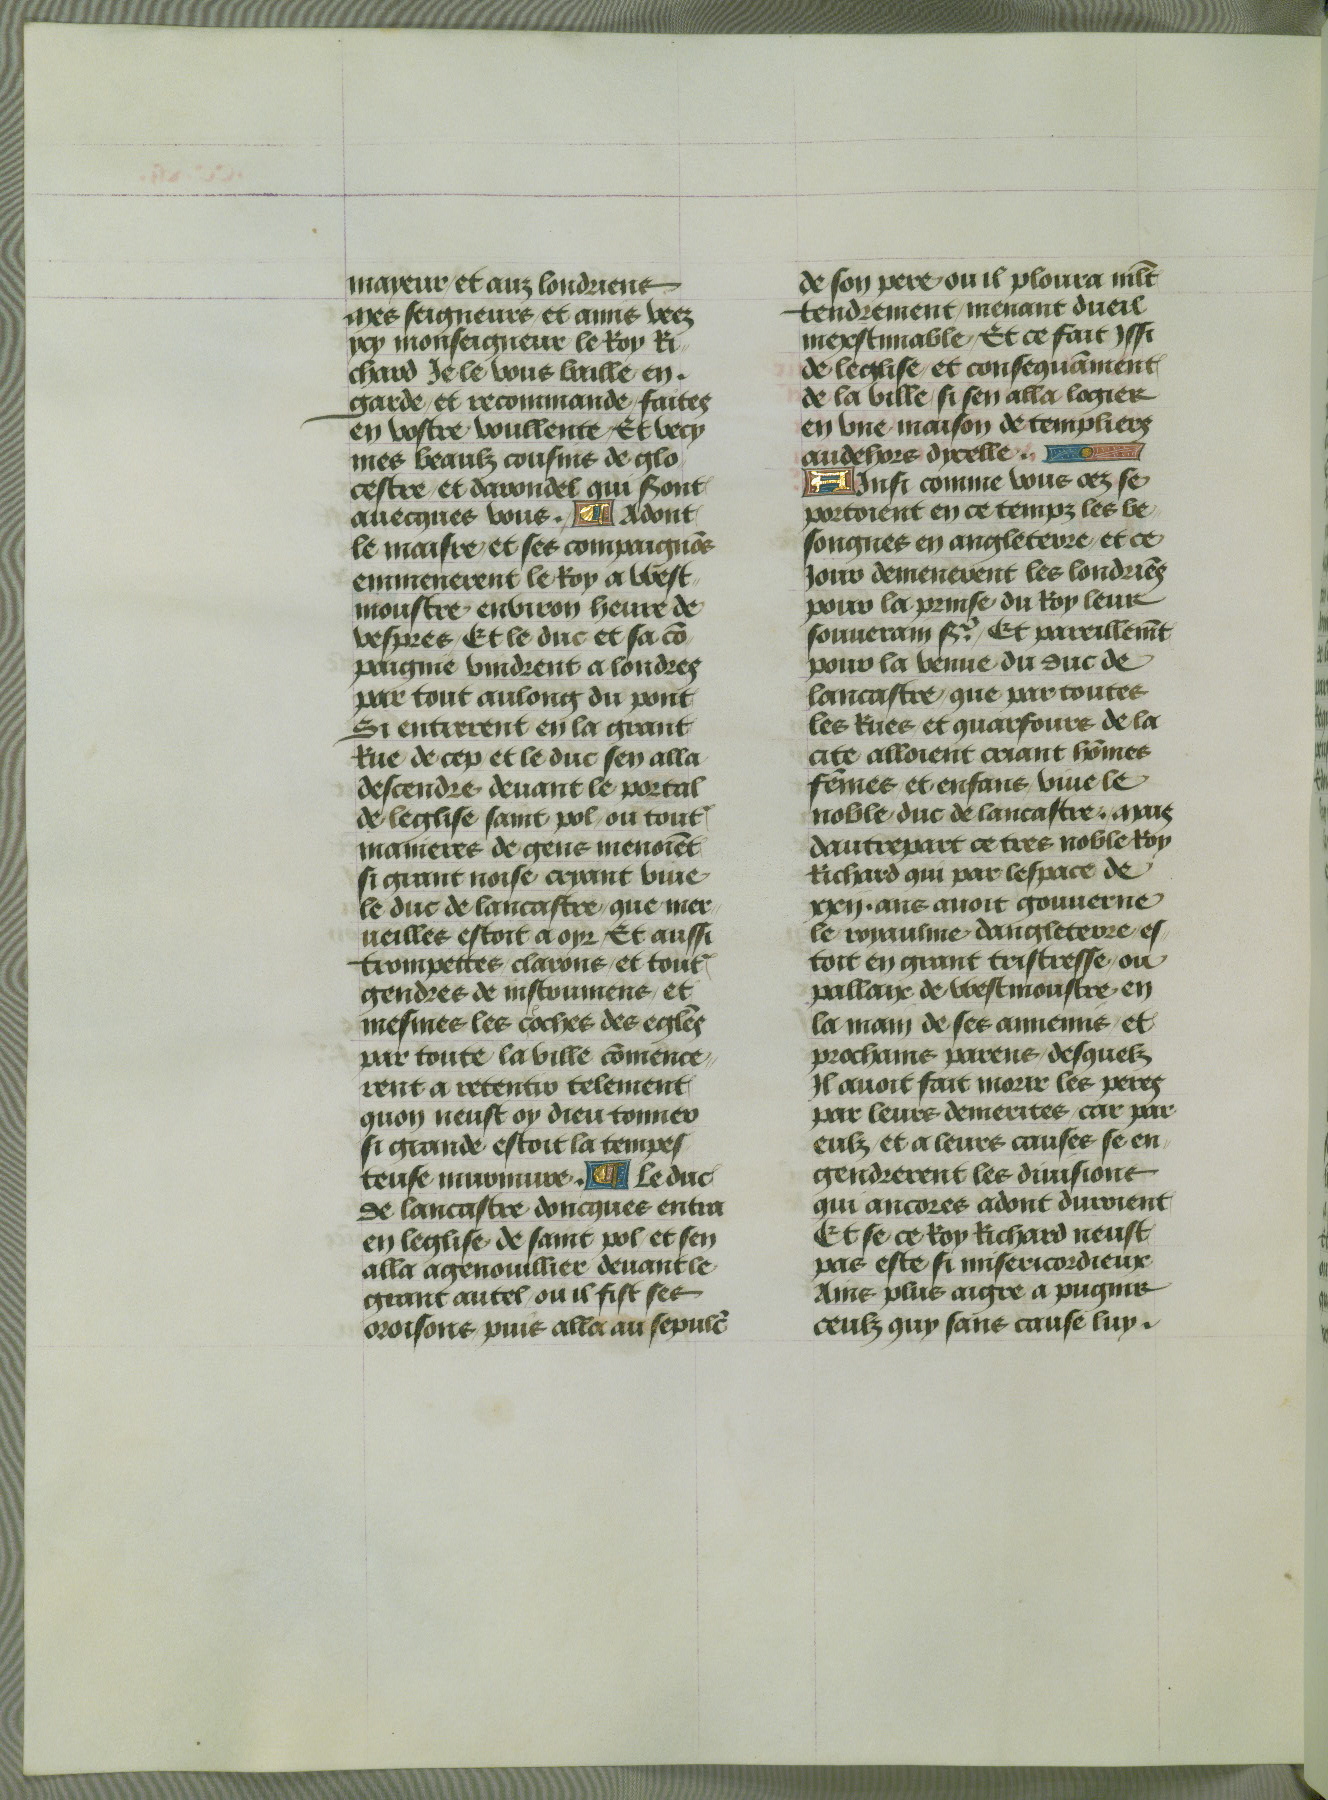 mayeur et auz londriens
mes seigneurs et amis veez
ycy monseigneur le Roy Ri
chard Je le vous baille en.
garde et recommande faites
en vostre voullente Et vecy
mes beaulz cousins de glo
cestre et darondel qui sont
auecques vous. ¶ Adont
le maisre et ses compaignōs
emmenerent le Roy a West
moustre enuiron heure de
vespres Et le duc et sa cō
paignie vindrent a londres
par tout aulong du pont
Si entrerent en la grant
Rue de cep et le duc sen alla
descendre deuant le portal
de leglise saint pol ou tout
manieres de gens menoiēt
si grant noise cryant viue
le duc de lancastre que mer
ueilles estoit a oyr Et aussi
trompettes clarons et tout
gendres de instrumens et
mesmes les coches des eglēs
par toute la ville cōmence
rent a retentir telement
quon neust oy dieu tonner
si grande estoit la tempes
teuse murmure. ¶ Le duc
de lancastre doncques entra
en leglise de saint pol et sen
alla agenouillier deuant le
grant autel ou il fist ses
oroisons puis alla au sepulc̄
de son pere ou il ploura mlt̄
tendrement menant dueil
inexstimable Et ce fait Issi
de leglise et consequāment
de la ville si sen alla logier
en vne maison de templiers
audehors dycelle.
AInsi comme vous oez se
portoient en ce tempz les be
songnes en angleterre et ce
Jour demenerent les londriēs
pour la prinse du Roy leur
souuerain sr̄ Et pareillemt̄
pour la venue du duc de
lancastre que par toutes
les Rues et quarfours de la
cite alloient criant hōmes
fēmes et enfans viue le
noble duc de lancastre. mais
dautrepart ce tres noble Roy
Richard qui par lespace de
xxij. ans auoit gouuerne
le royaulme dangleterre es
toit en grant tristresse ou
pallaix de Westmoustre en
la main de ses annemis et
prochains parens desquelz
Il auoit fait morir les peres
par leurs demerites car par
eulz et a leurs causes se en
gendrerent les diuisions
qui ancores adont duroient
Et se ce Roy Richard neust
pas este si misericordieux
Ains plus aigre a pugnir
ceulz quy sans cause luy.